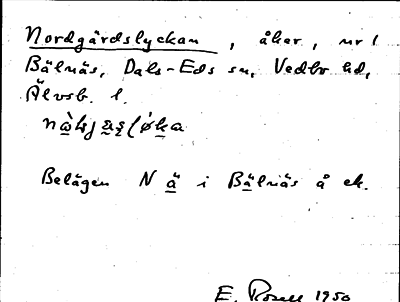 Nordgårdslyckan, åker, nr 1
Bälnäs, Dals-Eds sn, Vedbo hd,
Älvsb. l.
Belägen N ä i Bälnäs å ek.
E. Rosell 1950